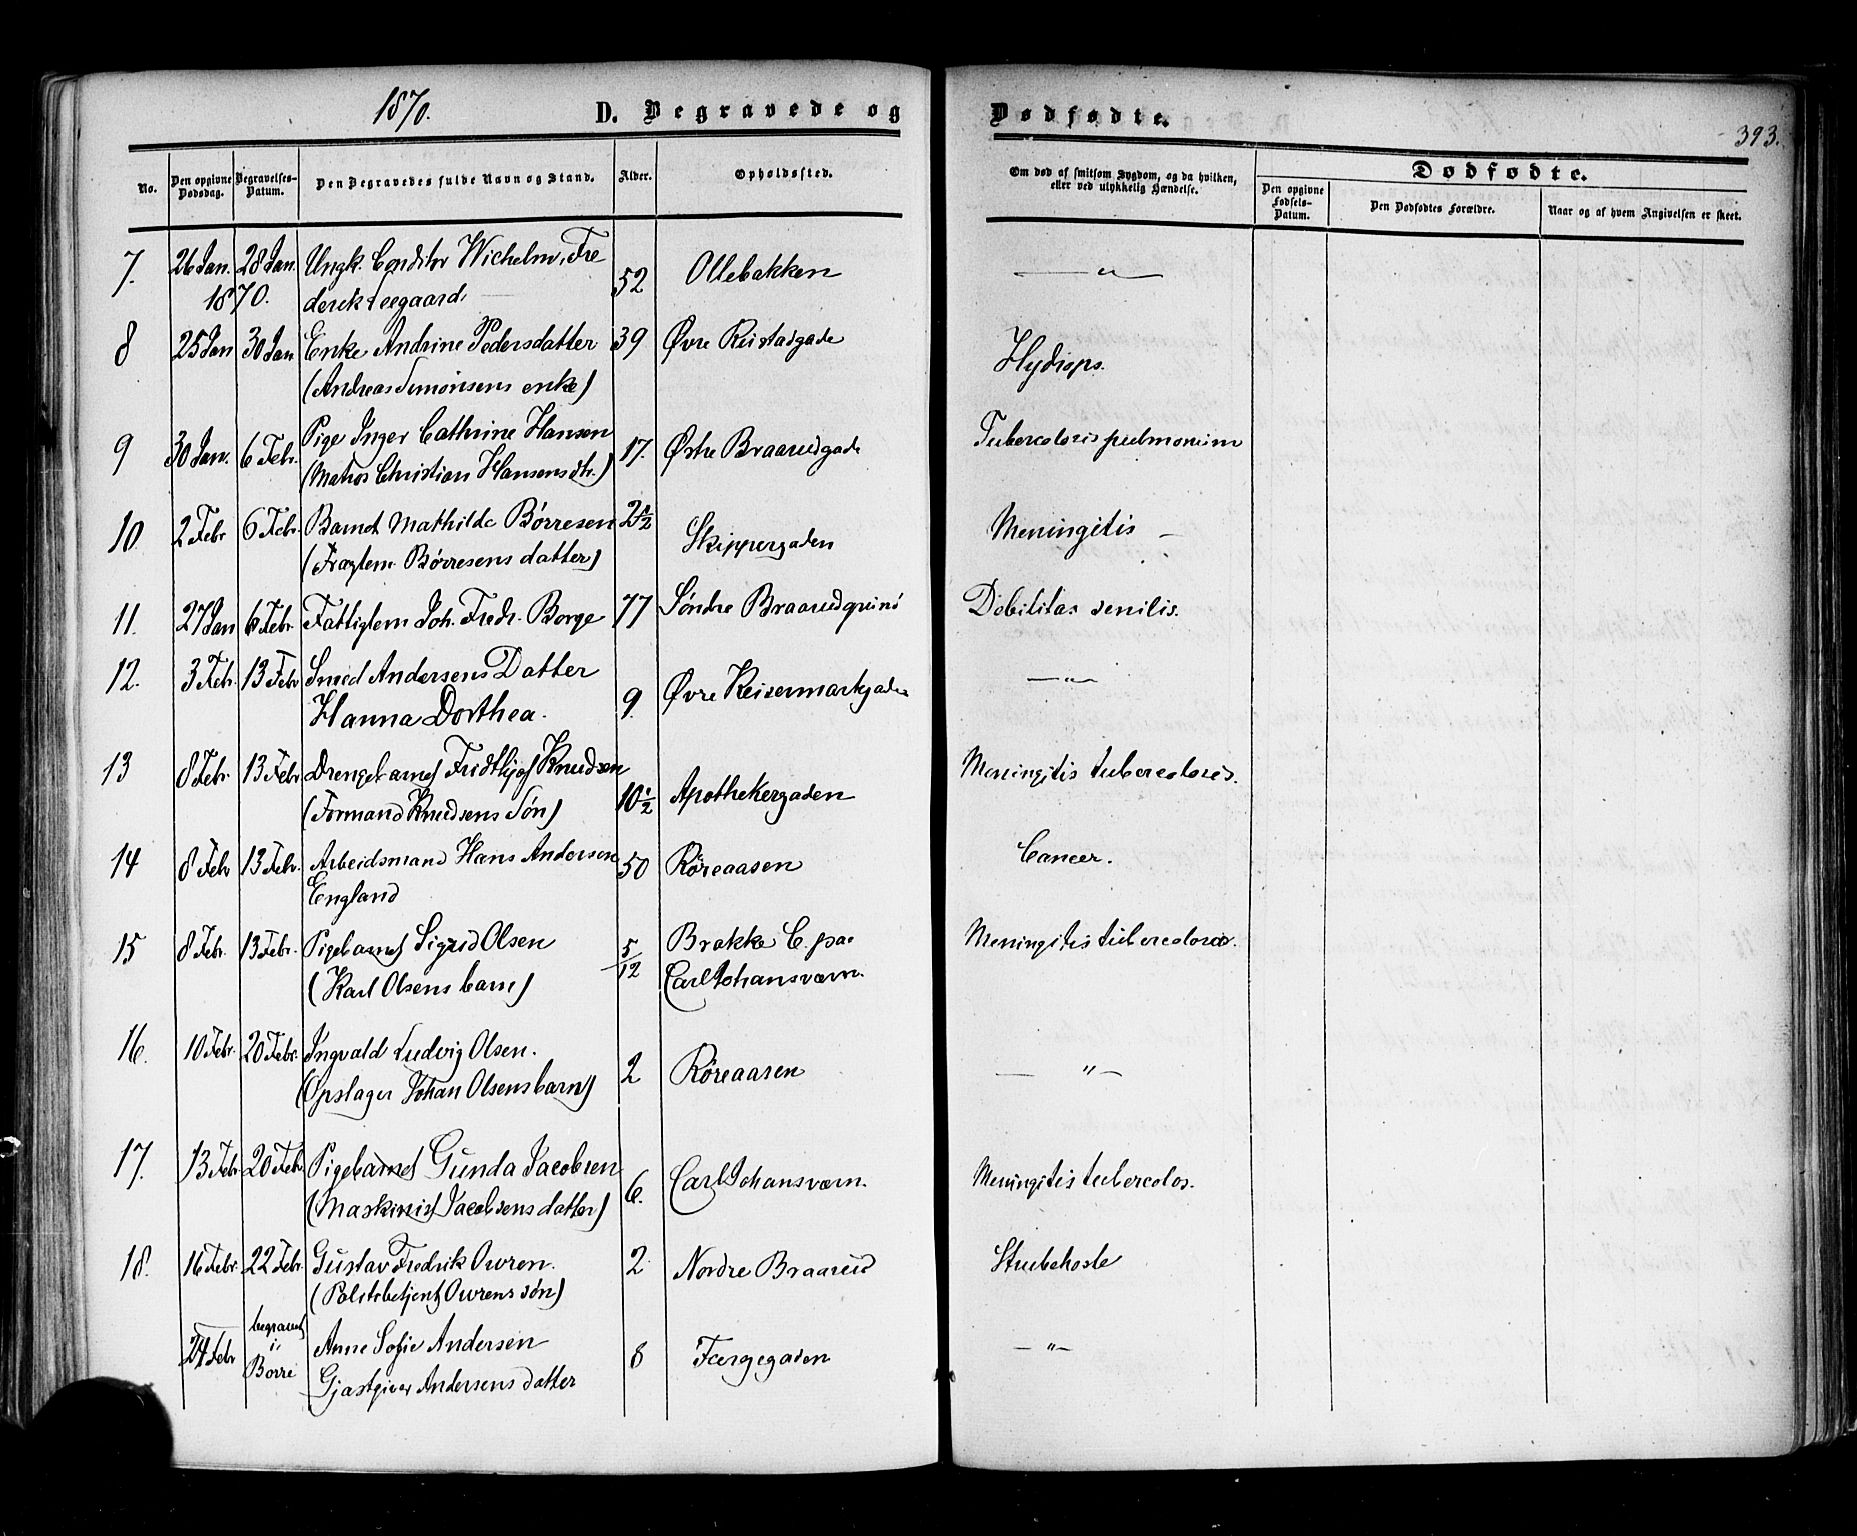 1870. D. Begravede og Dødfødte.
393.
No. Den opgivne Dødsdag. Begravelses-Datum. Den Begravedes fulde Navn og Stand. Alder. Opholdssted. Om død af smitsom Sygdom, og da hvilken, eller ved ulykkelig Hændelse. Dødfødte.
Den opgivne Fødsels-Datum. Den Dødfødtes Forældre. Naar og af hvem Angivelsen er skeet.
7. 26 Jan. 28 Jan. Ungk. Conditor Wichelm Fre 52 Ollebakken — " —
1870. derek Teegaard
8 25 Jan 30 Jan Enke Andrine Pedersdatter 39 Øvre Hydrops.
(Andreas Simonsens enke)
9 30 Jan. 6 Febr. Pige Inger Cathrine Hansen 17. Østre Braarudgade Tubercolosis pulmonum
(Matros Christian Hansens dtr.)
10 2 Febr 6 Febr. Barnet Mathilde Børresen 2 1/2 Skippergaden Meningitis —
(Fragtem. Børresens datter)
11. 27 Jan 6 Febr. Fattiglem Joh. Fredr. Borge 77 Søndre Braarudgrund Debilitas senilis.
12. 3 Febr. 13 Febr Smed Andersens Datter 9. Øvre Keisermarkgade — " —
Hanna Dorthea.
13 8 Febr. 13 Febr Drengebarnet Fridthjof Knudsen 10 1/2 Apothekergaden Meningitis tubercolosis.
(Formand Knudsens Søn)
14 8 Febr 13 Febr. Arbeidsmand Hans Andersen 50 Røreaasen Cancer.
England
15 8 Febr. 13 Febr. Pigebarnet Sigrid Olsen 5/12 Brakke C. paa Meningitis tubercolosa.
(Karl Olsens barn) Carl Johansværn.
16. 10 Febr. 20 Febr. Ingvald Ludvig Olsen. 2 Røreaasen — " —
(Opslager Johan Olsens barn)
17. 13 Febr. 20 Febr. Pigebarnet Gunda Jacobsen 6. Carl Johansværn. Meningitis tubercolos.
(Maskinist Jacobsens datter)
18. 16 Febr. 22 Febr. Gustav Fredrik Owren. 2 Nordre Braarud Strubehoste
(Politibetjent Owrens søn)
24 Febr begravet i Borre Anne Sofie Andersen 8 Færgegaden — " —
Gjæstgiver Andersens datter